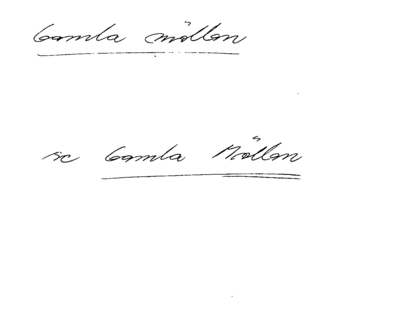 Gamla möllan
sc Gamla Möllan